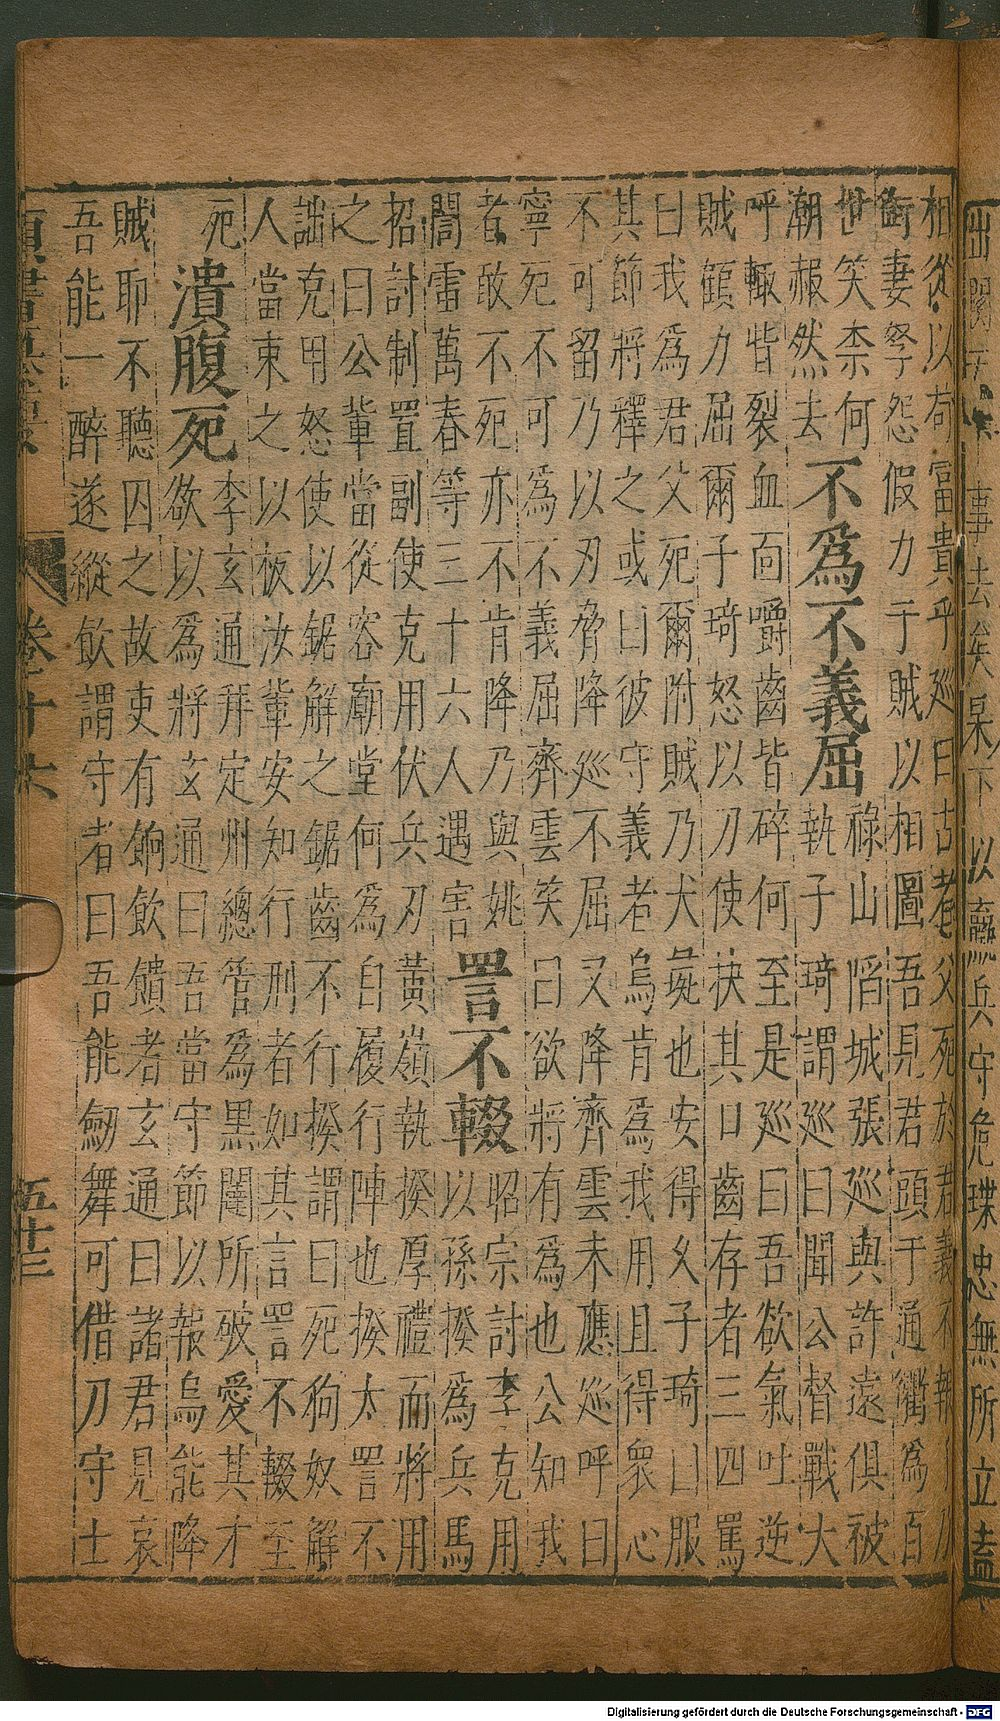 事去矣杲下以羸兵守危堞忠無所立盍
相從以苟富貴乎巡曰古者父死於君義不報子乃
銜妻孥怨假力于賊以相圖吾見君頭于通衢為百
世笑柰何
潮赧然去
不為不義屈
祿山陷城張巡與許遠俱被
執子琦謂巡曰聞公督戰大
呼輙眥裂血面嚼齒皆碎何至是巡曰吾欲氣吐逆
賊顧力屈爾子琦怒以刀使抉其口齒存者三四罵
曰我為君父死爾附賊乃犬彘也安得久子琦口服
其節將釋之或曰彼守義者烏肯為我用且得衆心
不可留乃以刃脅降巡不屈又降齊雲未應巡呼曰
寧死不可為不義屈齊雲笑曰欲將有為也公知我
者敢不死亦不肯降乃與姚
誾雷萬春等三十六人遇害
詈不輟
昭宗討李克用
以孫揆為兵馬
招討制置副使克用伏兵刃黃嶺執揆厚禮而將用
之曰公輩當從容廟堂何為自履行陣也揆太詈不
詘克用怒使以鋸解之鋸齒不行揆謂曰死狗奴解
人當束之以板汝輩安知行刑者如其言詈不輟至
死
潰腹死
李玄通拜定州總管為黑闥所破愛其才
欲以為將玄通曰吾當守節以報烏能降
賊耶不聽囚之故吏有餉飲饋者玄通曰諸君見哀
吾能一醉遂縱飲謂守者曰吾能劒舞可借刀守士
卷十六
五十三
Digitalisierung gefördert durch die Deutsche Forschungsgemeinschaft - DFG